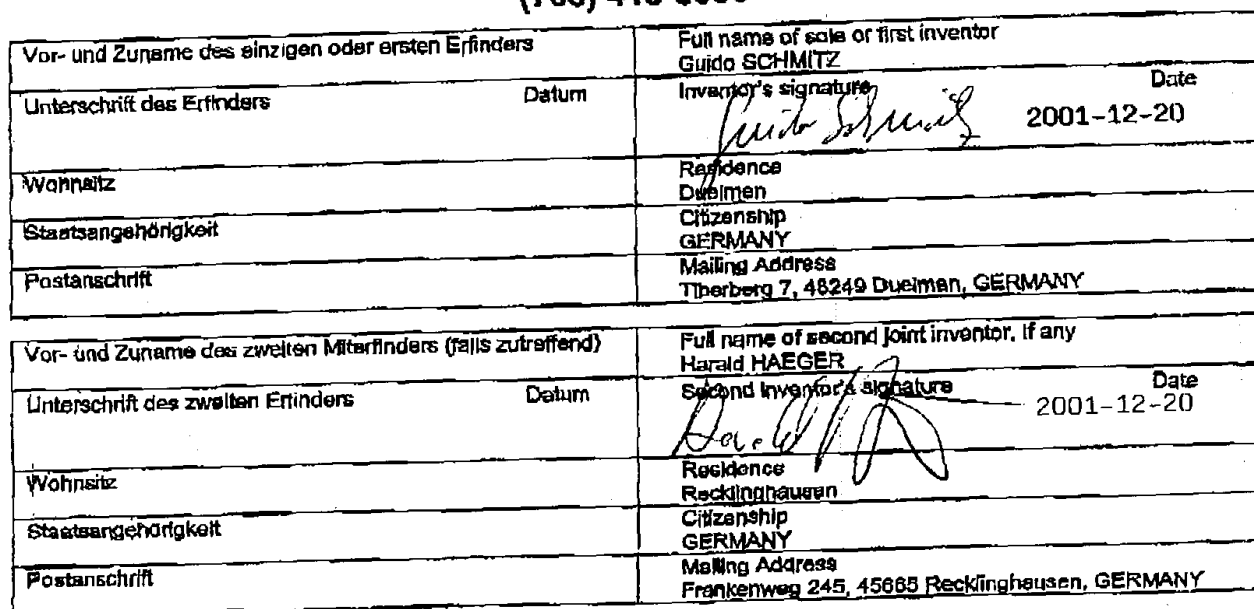 Vor- und Zuname des einzigen oder ersten Erfinders
Full name of sole or first inventor
Guido SCHMITZ
Unterschrift des Erfinders Datum
Inventor's signature Date
Guido Schmitz 2001-12-20
Wohnsitz
Residence
Duelmen
Staatsangehörigkeit
Citizenship
GERMANY
Postanschrift
Mailing Address
Tiberberg 7, 48249 Duelmen, GERMANY
Vor- und Zuname des zweiten Miterfinders (falls zutreffend)
Full name of second joint inventor, if any
Harald HAEGER
Unterschrift des zweiten Erfinders Datum
Second Inventor's signature Date
Harald 2001-12-20
Wohnsitz
Residence
Recklinghausen
Staatsangehörigkeit
Citizenship
GERMANY
Postanschrift
Mailing Address
Frankenweg 245, 45665 Recklinghausen, GERMANY